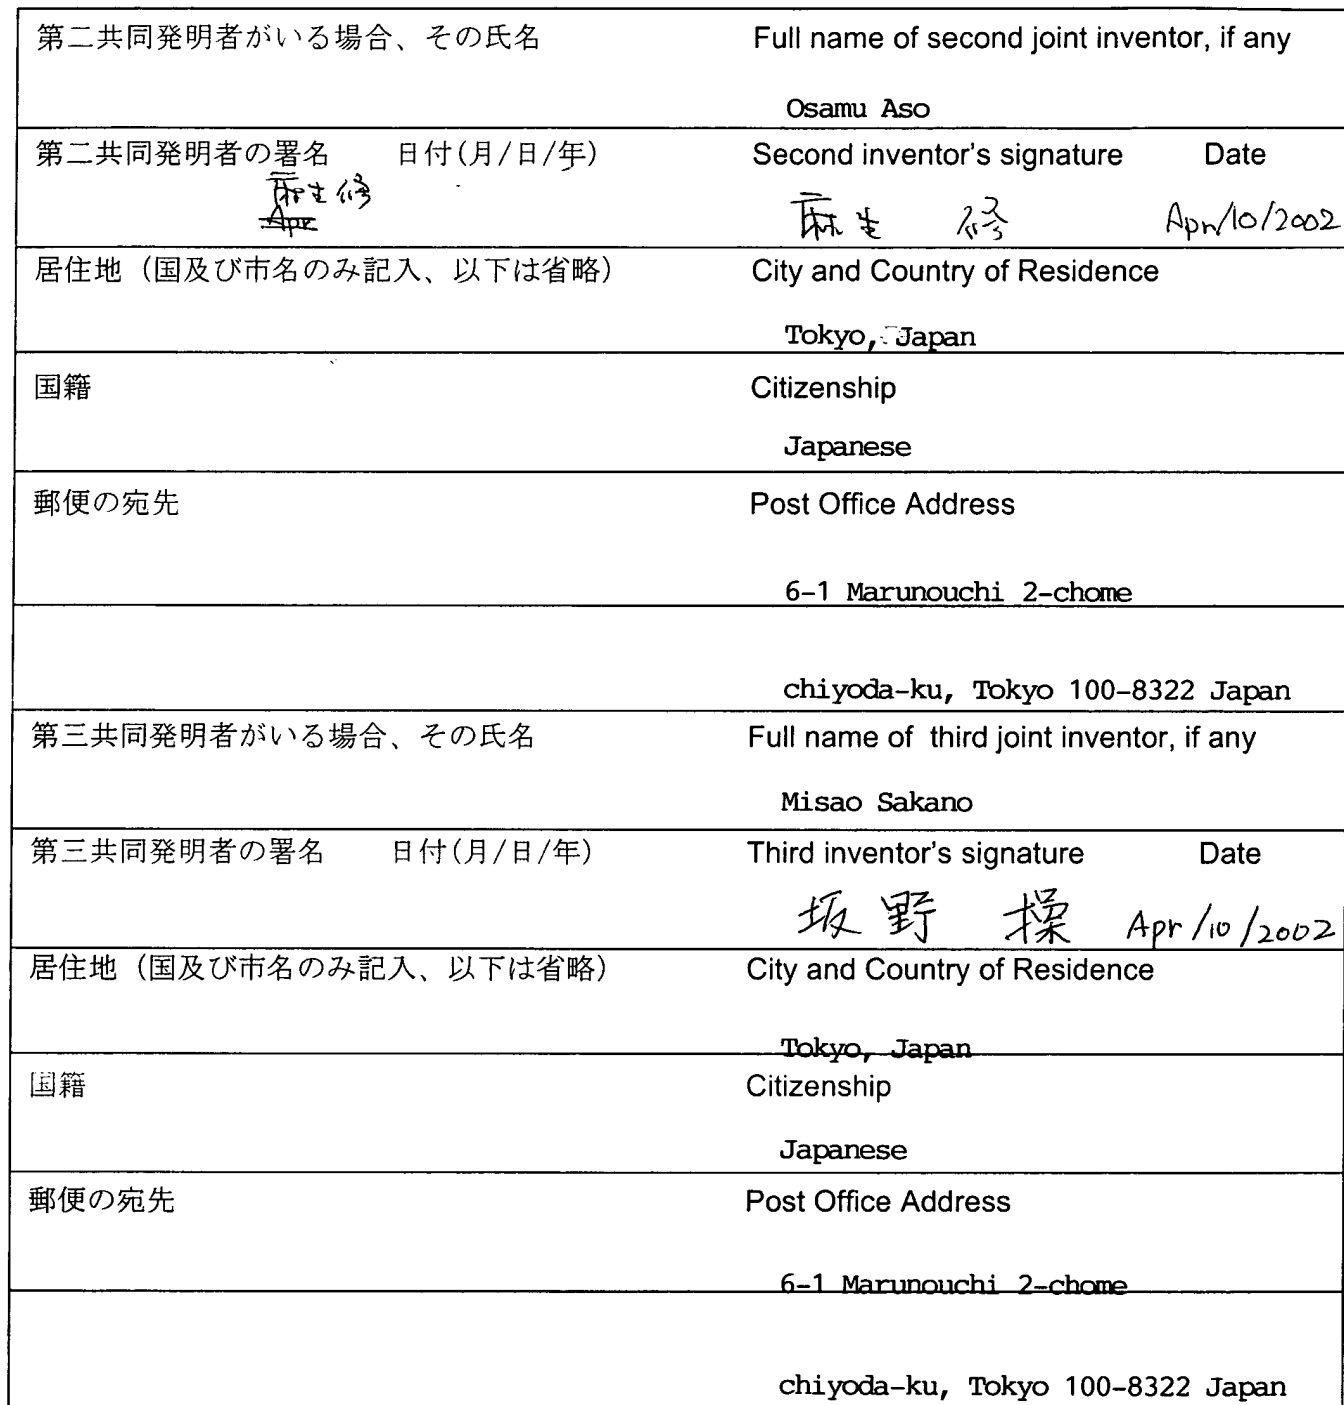 第二共同発明者がいる場合、その氏名 Full name of second joint inventor, if any
Osamu Aso
第二共同発明者の署名 日付(月/日/年) Second inventor's signature Date
麻生修
Apr
麻生 修 Apr/10/2002
居住地（国及び市名のみ記入、以下は省略） City and Country of Residence
Tokyo, Japan
国籍 Citizenship
Japanese
郵便の宛先 Post Office Address
6-1 Marunouchi 2-chome
chiyoda-ku, Tokyo 100-8322 Japan
第三共同発明者がいる場合、その氏名 Full name of third joint inventor, if any
Misao Sakano
第三共同発明者の署名 日付(月/日/年) Third inventor's signature Date
坂野 操 Apr/10/2002
居住地（国及び市名のみ記入、以下は省略） City and Country of Residence
Tokyo, Japan
国籍 Citizenship
Japanese
郵便の宛先 Post Office Address
6-1 Marunouchi 2-chome
chiyoda-ku, Tokyo 100-8322 Japan